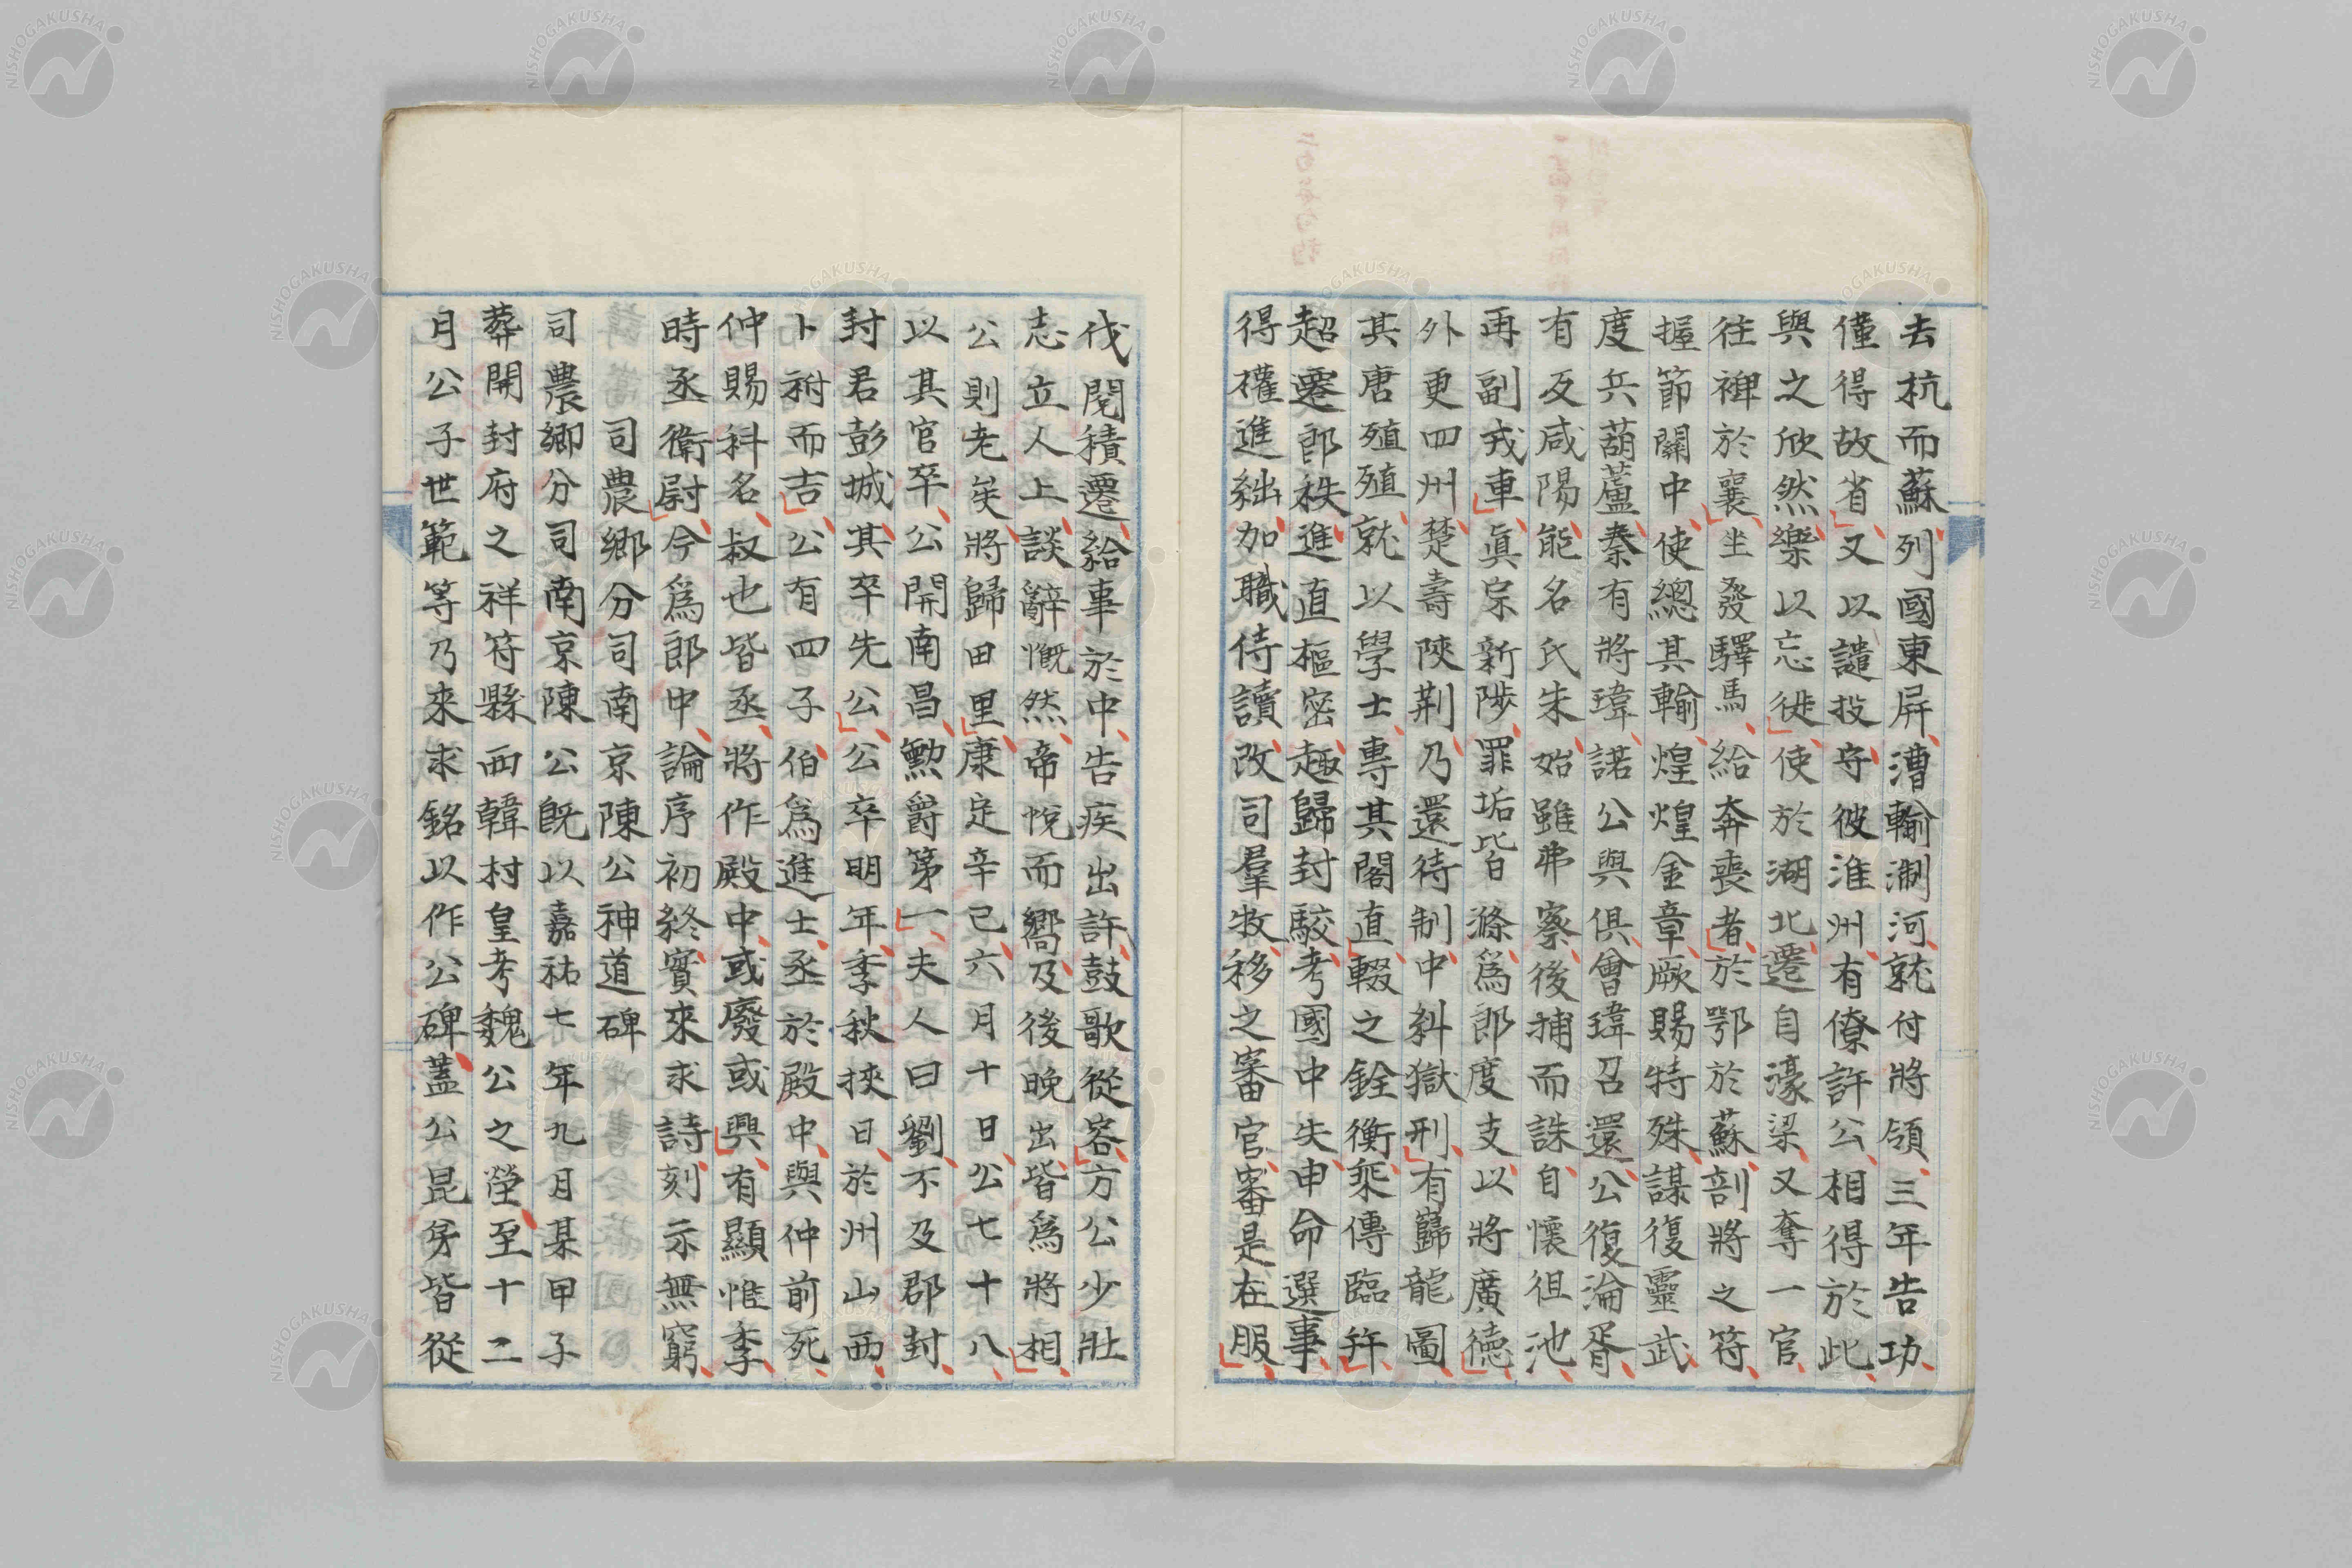 去杭而蘇列國東屏漕輸淛河就付將領三年告功
僅得故省又以譴投守彼淮州有僚許公相得於此
與之欣然樂以忘徙使於湖北遷自濠梁又奪一官
往裨於襄坐發驛馬給奔喪者於鄂於蘇剖將之符
握節關中使總其輸煌煌金章厥賜特殊謀復靈武
度兵葫蘆秦有將瑋諾公與俱會瑋召還公復淪胥
有反咸陽能名氏朱始雖弗察後捕而誅自懷徂池
再副戎車眞宗新陟罪垢皆滌爲郎度支以將廣德
外更四州楚壽陝荆乃還待制中糾獄刑有巋龍圖
其唐殖殖就以學士專其閣直輟之銓衡乘傳臨幷
超遷郎秩進直樞密趣歸封駮考國中失申命選事
得權進絀加職侍讀改司羣牧移之審官審是在服
伐閱積遷給事於中告疾出許鼓歌從容方公少壯
志立人上談辭慨然帝悅而嚮及後晚出皆爲將相
公則老矣將歸田里康定辛巳六月十日公七十八
以其官卒公開南昌勳爵第一夫人曰劉不及郡封
封君彭城其卒先公公卒明年季秋挾日於州山西
卜祔而吉公有四子伯爲進士丞於殿中與仲前死
仲賜科名叔也皆丞將作殿中或廢或興有顯惟季
時丞衞尉今爲郎中論序初終實來求詩刻示無窮
司農卿分司南京陳公神道碑
司農卿分司南京陳公旣以嘉祐七年九月某甲子
葬開封府之祥符縣西韓村皇考魏公之塋至十二
月公子世範等乃來求銘以作公碑蓋公昆弟皆從
NISHOGAKUSHA